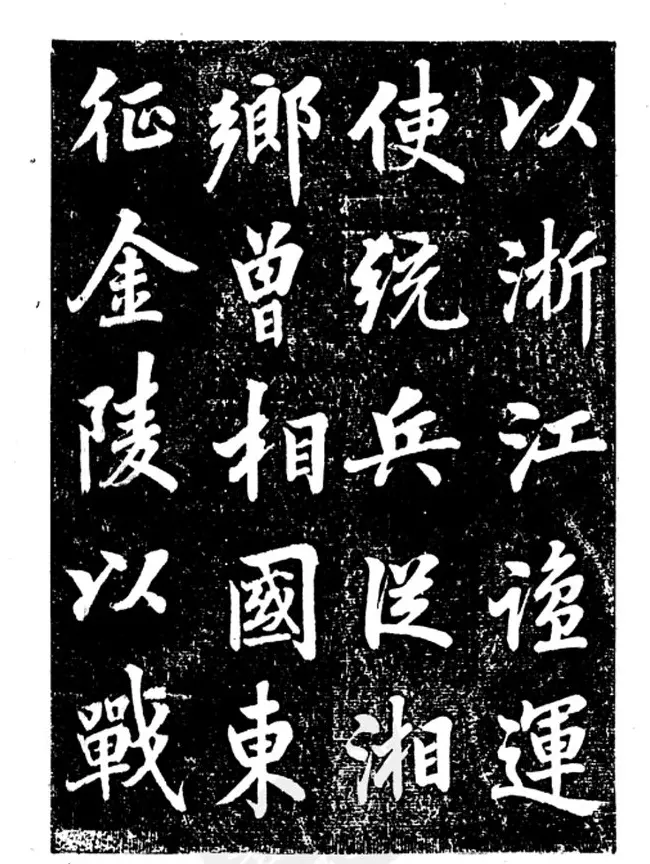 以浙江鹽運
使統兵從湘
鄉曾相國東
征金陵以戰